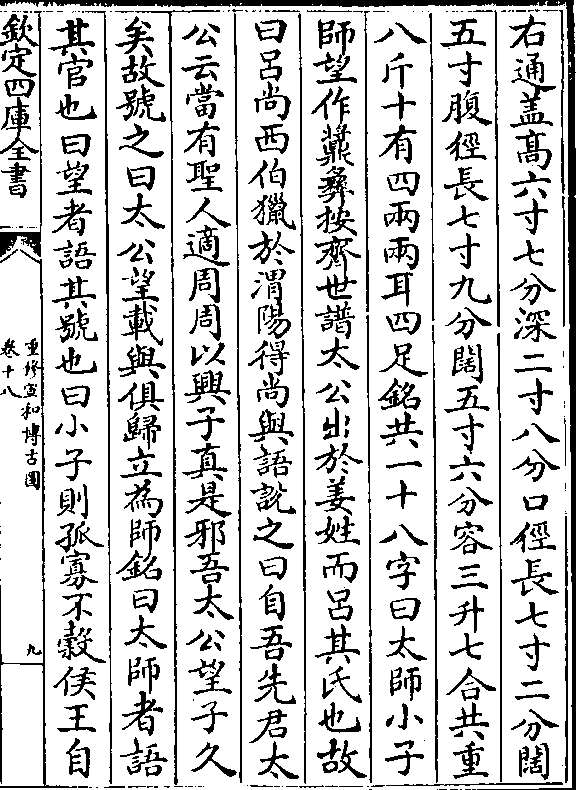 右通盖髙六寸七分深二寸八分口徑長七寸二分闊
五寸腹徑長七寸九分闊五寸六分容三升七合共重
八斤十有四兩兩耳四足銘共一十八字曰太師小子
師望作䵼彞按齊世譜太公出於姜姓而吕其氏也故
曰吕尚西伯獵於渭陽得尚與語説之曰自吾先君太
公云當有聖人適周周以興子真是邪吾太公望子久
矣故號之曰太公望載與俱歸立為師銘曰太師者語
其官也曰望者語其號也曰小子則孤寡不榖侯王自
欽定四庫全書
重修宣和博古圖
卷十八
九